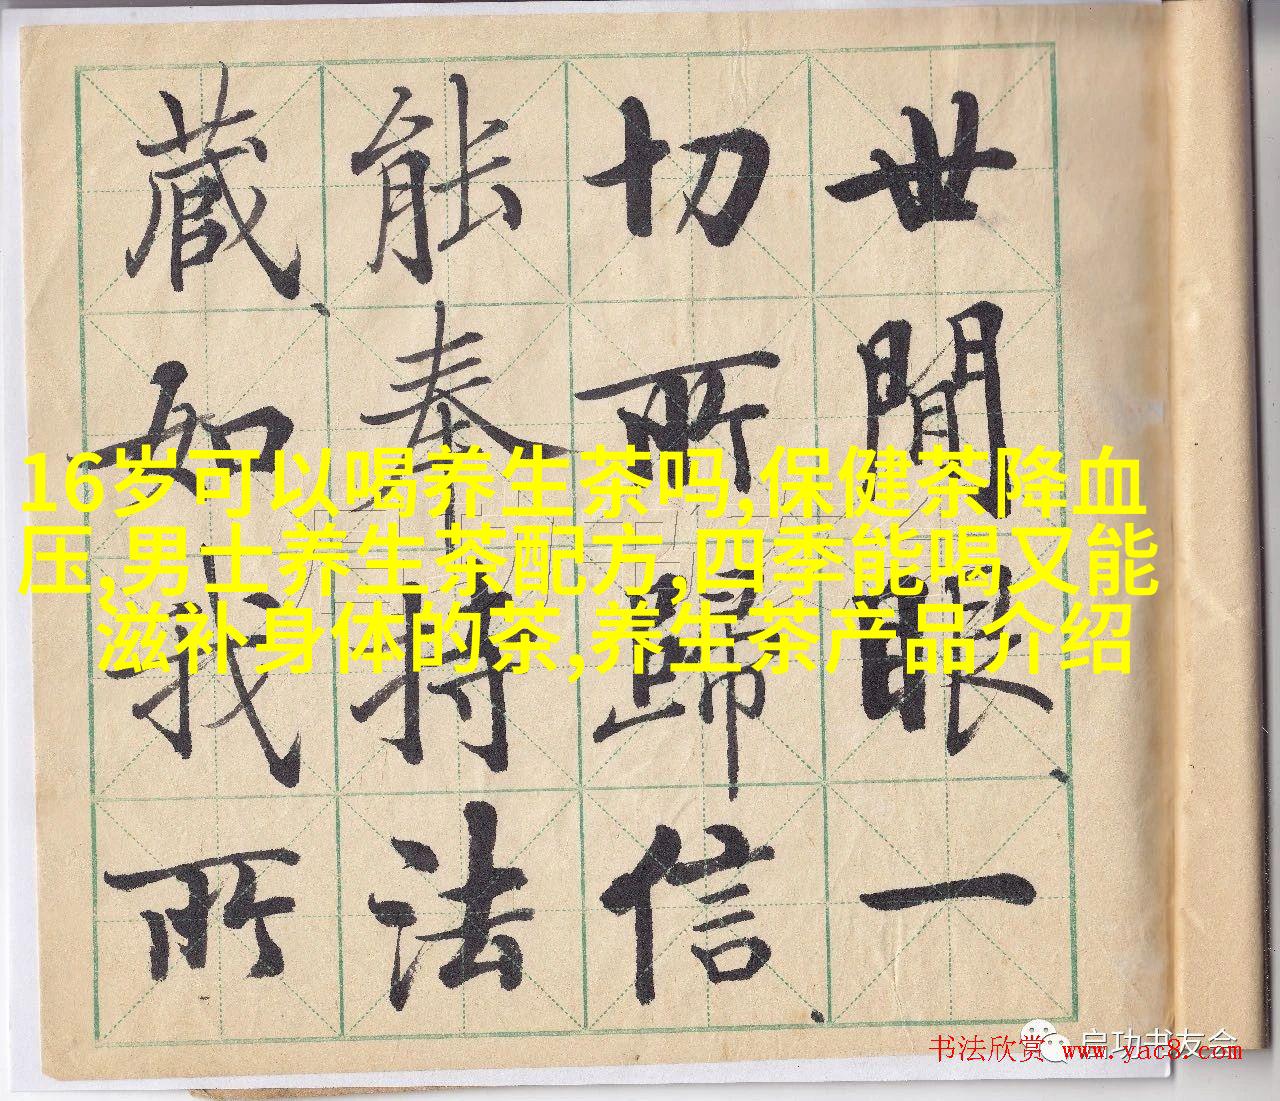 世閒眼一
切所歸信
能奉持法
藏如我所
16岁可以喝养生茶吗,保健茶降血
压,男士养生茶配方,四季能喝又能
滋补身体的茶,养生茶产品介绍
启功书友会
书法欣赏 www.yac8.com